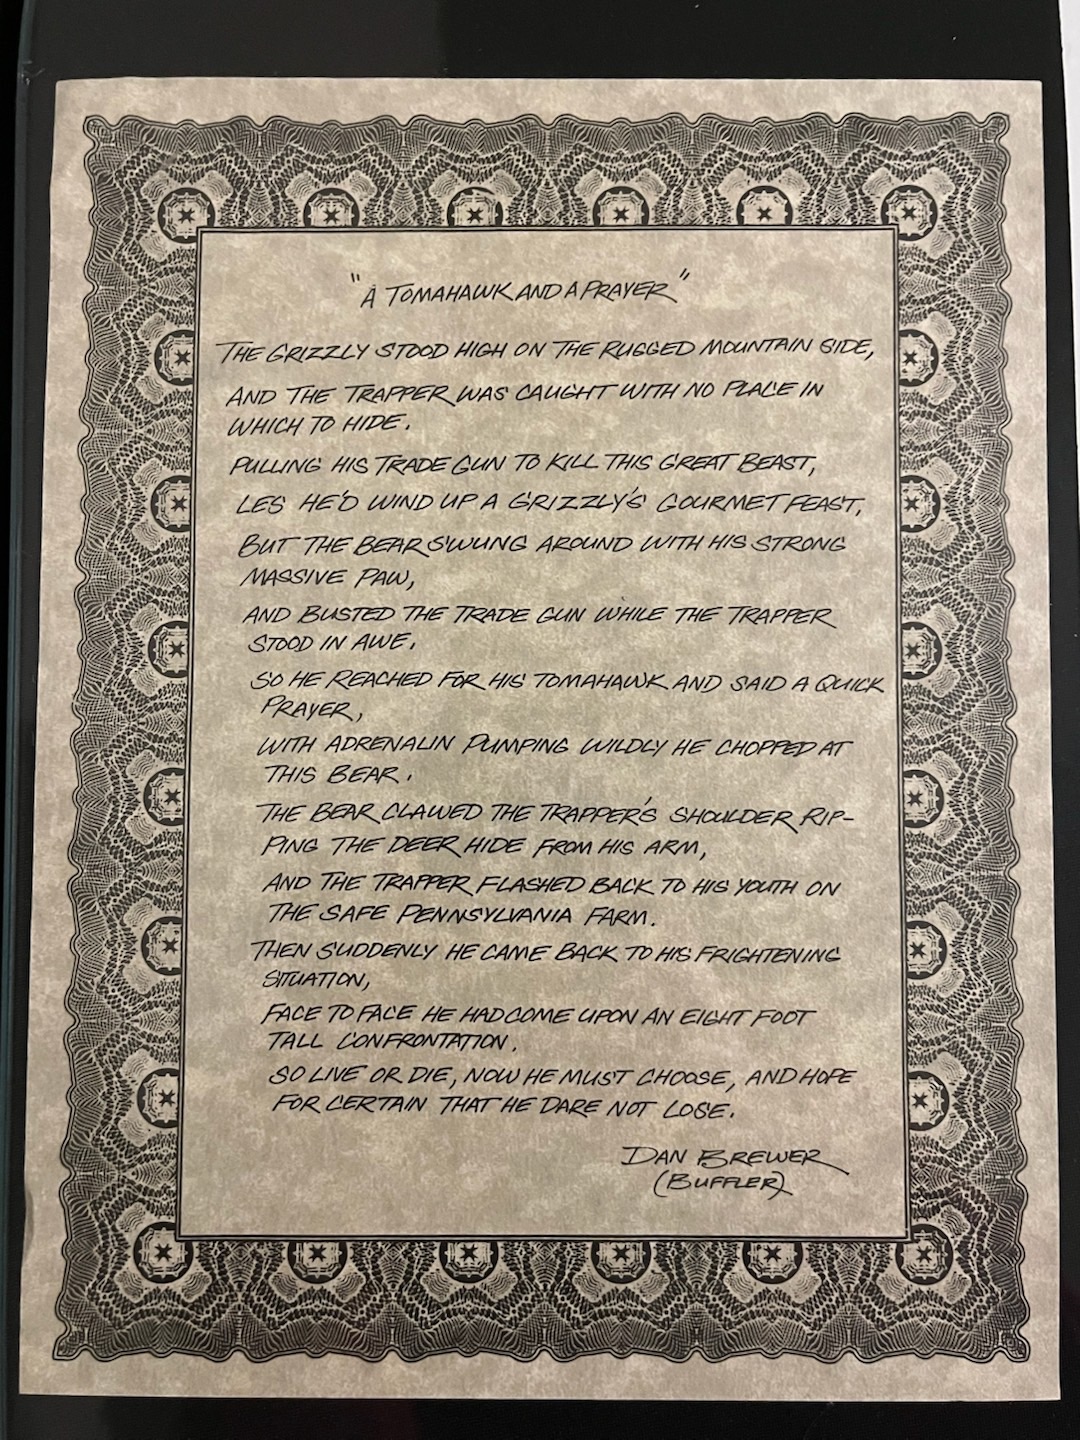 "A TOMAHAWK AND A PRAYER"
THE GRIZZLY STOOD HIGH ON THE RUGGED MOUNTAIN SIDE,
AND THE TRAPPER WAS CAUGHT WITH NO PLACE IN
WHICH TO HIDE.
PULLING HIS TRADE GUN TO KILL THIS GREAT BEAST,
LES HE'D WIND UP A GRIZZLY'S GOURMET FEAST,
BUT THE BEAR SWUNG AROUND WITH HIS STRONG
MASSIVE PAW,
AND BUSTED THE TRADE GUN WHILE THE TRAPPER
STOOD IN AWE.
SO HE REACHED FOR HIS TOMAHAWK AND SAID A QUICK
PRAYER,
WITH ADRENALIN PUMPING WILDLY HE CHOPPED AT
THIS BEAR.
THE BEAR CLAWED THE TRAPPER'S SHOULDER RIP-
PING THE DEER HIDE FROM HIS ARM,
AND THE TRAPPER FLASHED BACK TO HIS YOUTH ON
THE SAFE PENNSYLVANIA FARM.
THEN SUDDENLY HE CAME BACK TO HIS FRIGHTENING
SITUATION,
FACE TO FACE HE HAD COME UPON AN EIGHT FOOT
TALL CONFRONTATION.
SO LIVE OR DIE, NOW HE MUST CHOOSE, AND HOPE
FOR CERTAIN THAT HE DARE NOT LOSE.
DAN BREWER
(BUFFLER)